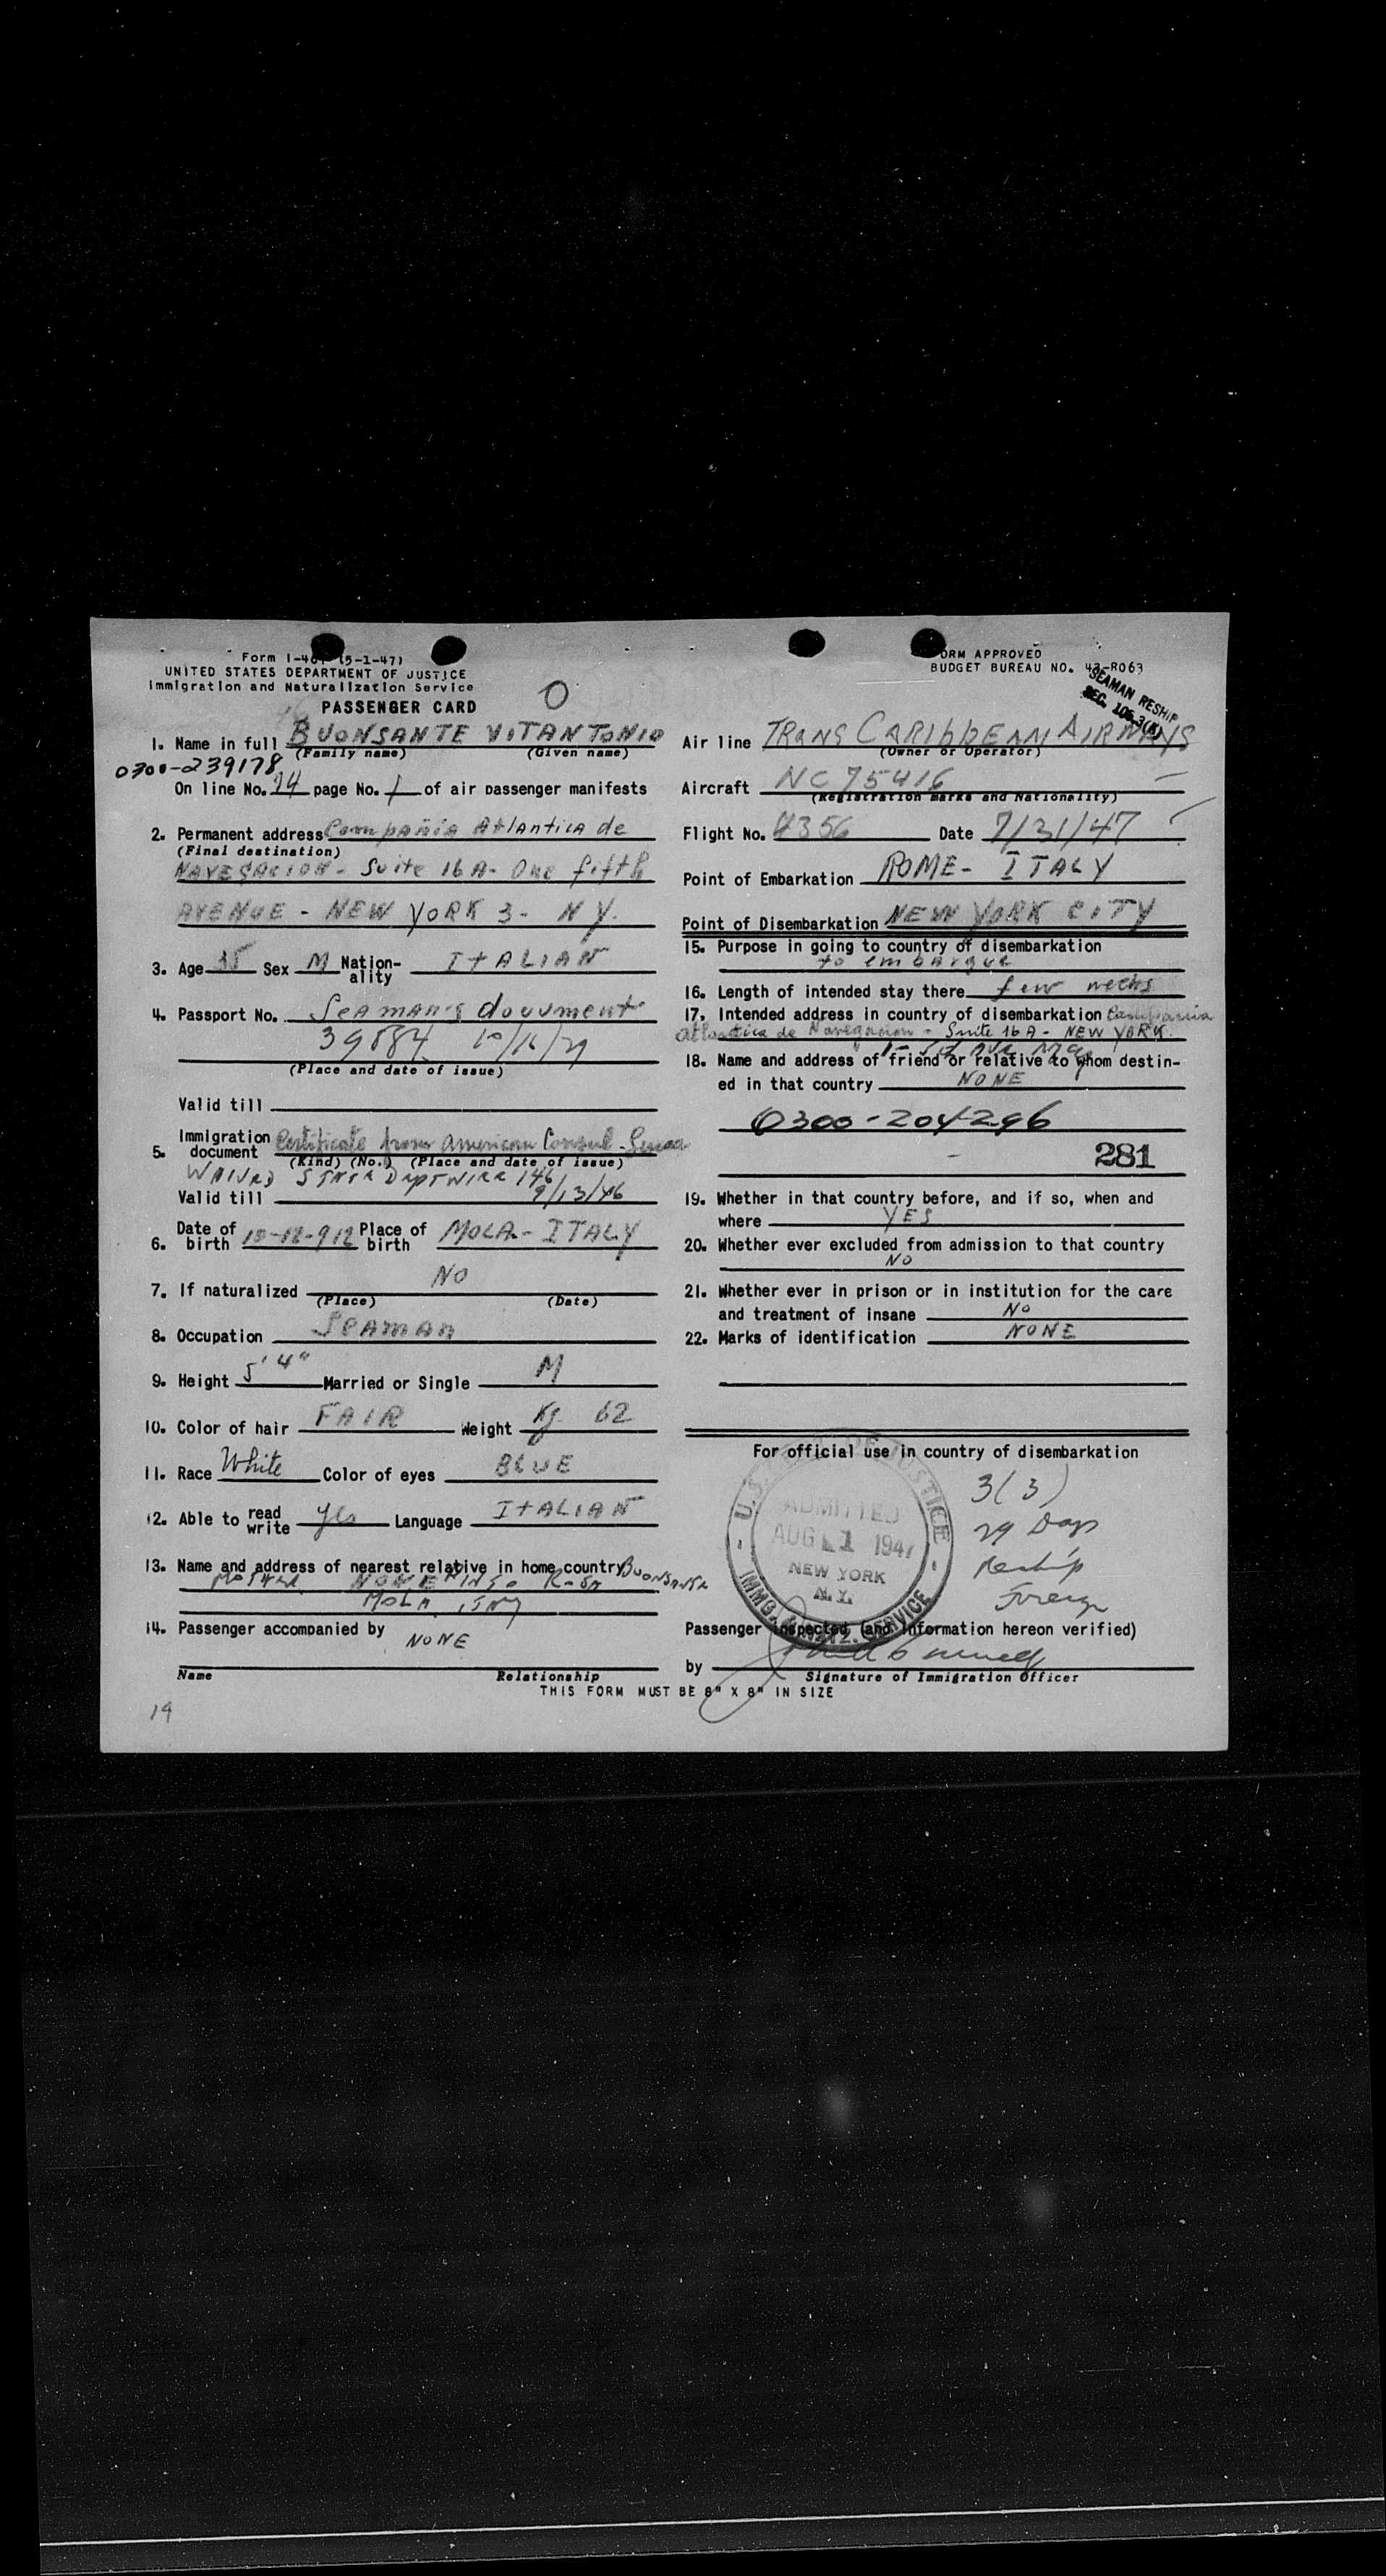 Form I-40 (5-1-47)
UNITED STATES DEPARTMENT OF JUSTICE
Immigration and Naturalization Service
PASSENGER CARD
O
ORM APPROVED
BUDGET BUREAU NO. 43-R063
SEAMAN RESHIP
SEC. 106.3(K)
1. Name in full BUONSANTE VITANTONIO
(Family name) (Given name)
0300-239178
On line No. 14 page No. 1 of air passenger manifests
2. Permanent address Compañia Atlantica de
(Final destination)
NAVEGACION - Suite 16 A - One fifth
AVENUE - NEW YORK 3 - N.Y.
3. Age 35 Sex M Nation-ality ITALIAN
4. Passport No. SEAMAN'S document
39884 10/16/29
(Place and date of issue)
Valid till
5. Immigration document Certificate from American Consul - Genoa
(Kind) (No.) (Place and date of issue)
WAIVED STATE DEPT WIRE 146
Valid till 9/13/46
6. Date of birth 10-12-912 Place of birth MOLA - ITALY
7. If naturalized NO
(Place) (Date)
8. Occupation SEAMAN
9. Height 5'4" Married or Single M
10. Color of hair FAIR Weight Kg. 62
11. Race White Color of eyes BLUE
12. Able to read write yes Language ITALIAN
13. Name and address of nearest relative in home country Buonsante
Mother Rosa
MOLA
14. Passenger accompanied by NONE
Name Relationship
Air line TRANS CARIbbEAN AIRWAYS
(Owner or Operator)
Aircraft NC 75416
(Registration marks and Nationality)
Flight No. 4356 Date 7/31/47
Point of Embarkation ROME - ITALY
Point of Disembarkation NEW YORK CITY
15. Purpose in going to country of disembarkation
to embarque
16. Length of intended stay there few weeks
17. Intended address in country of disembarkation Compania
Atlantica de Navegacion - Suite 16 A - NEW YORK.
18. Name and address of friend or relative to whom destin-
ed in that country NONE
0300-204296
281
19. Whether in that country before, and if so, when and
where YES
20. Whether ever excluded from admission to that country
NO
21. Whether ever in prison or in institution for the care
and treatment of insane NO
22. Marks of identification NONE
For official use in country of disembarkation
ADMITTED
AUG 1 1947
NEW YORK
N.Y.
3(3)
29 Days
Reship
Foreign
Passenger inspected (and information hereon verified)
by
Signature of Immigration Officer
THIS FORM MUST BE 8" X 8" IN SIZE
14